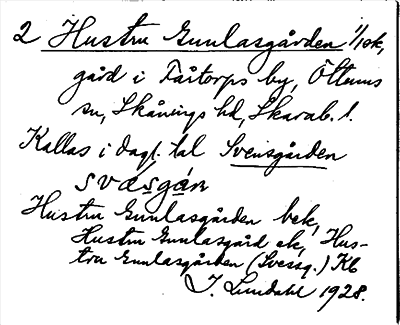 2 Hustru Gunlasgården 1/1 ek,
gård i Fåtorps by, Öttums
sn, Skånings hd, Skarab. l.
Kallas i dagl. tal Svensgården
svæsgán
Hustru Gunlasgården bek,
Hustru Gunlasgård ek, Hus-
tru Gunlasgården (Svessg.) Kb
J. Lundahl 1928.